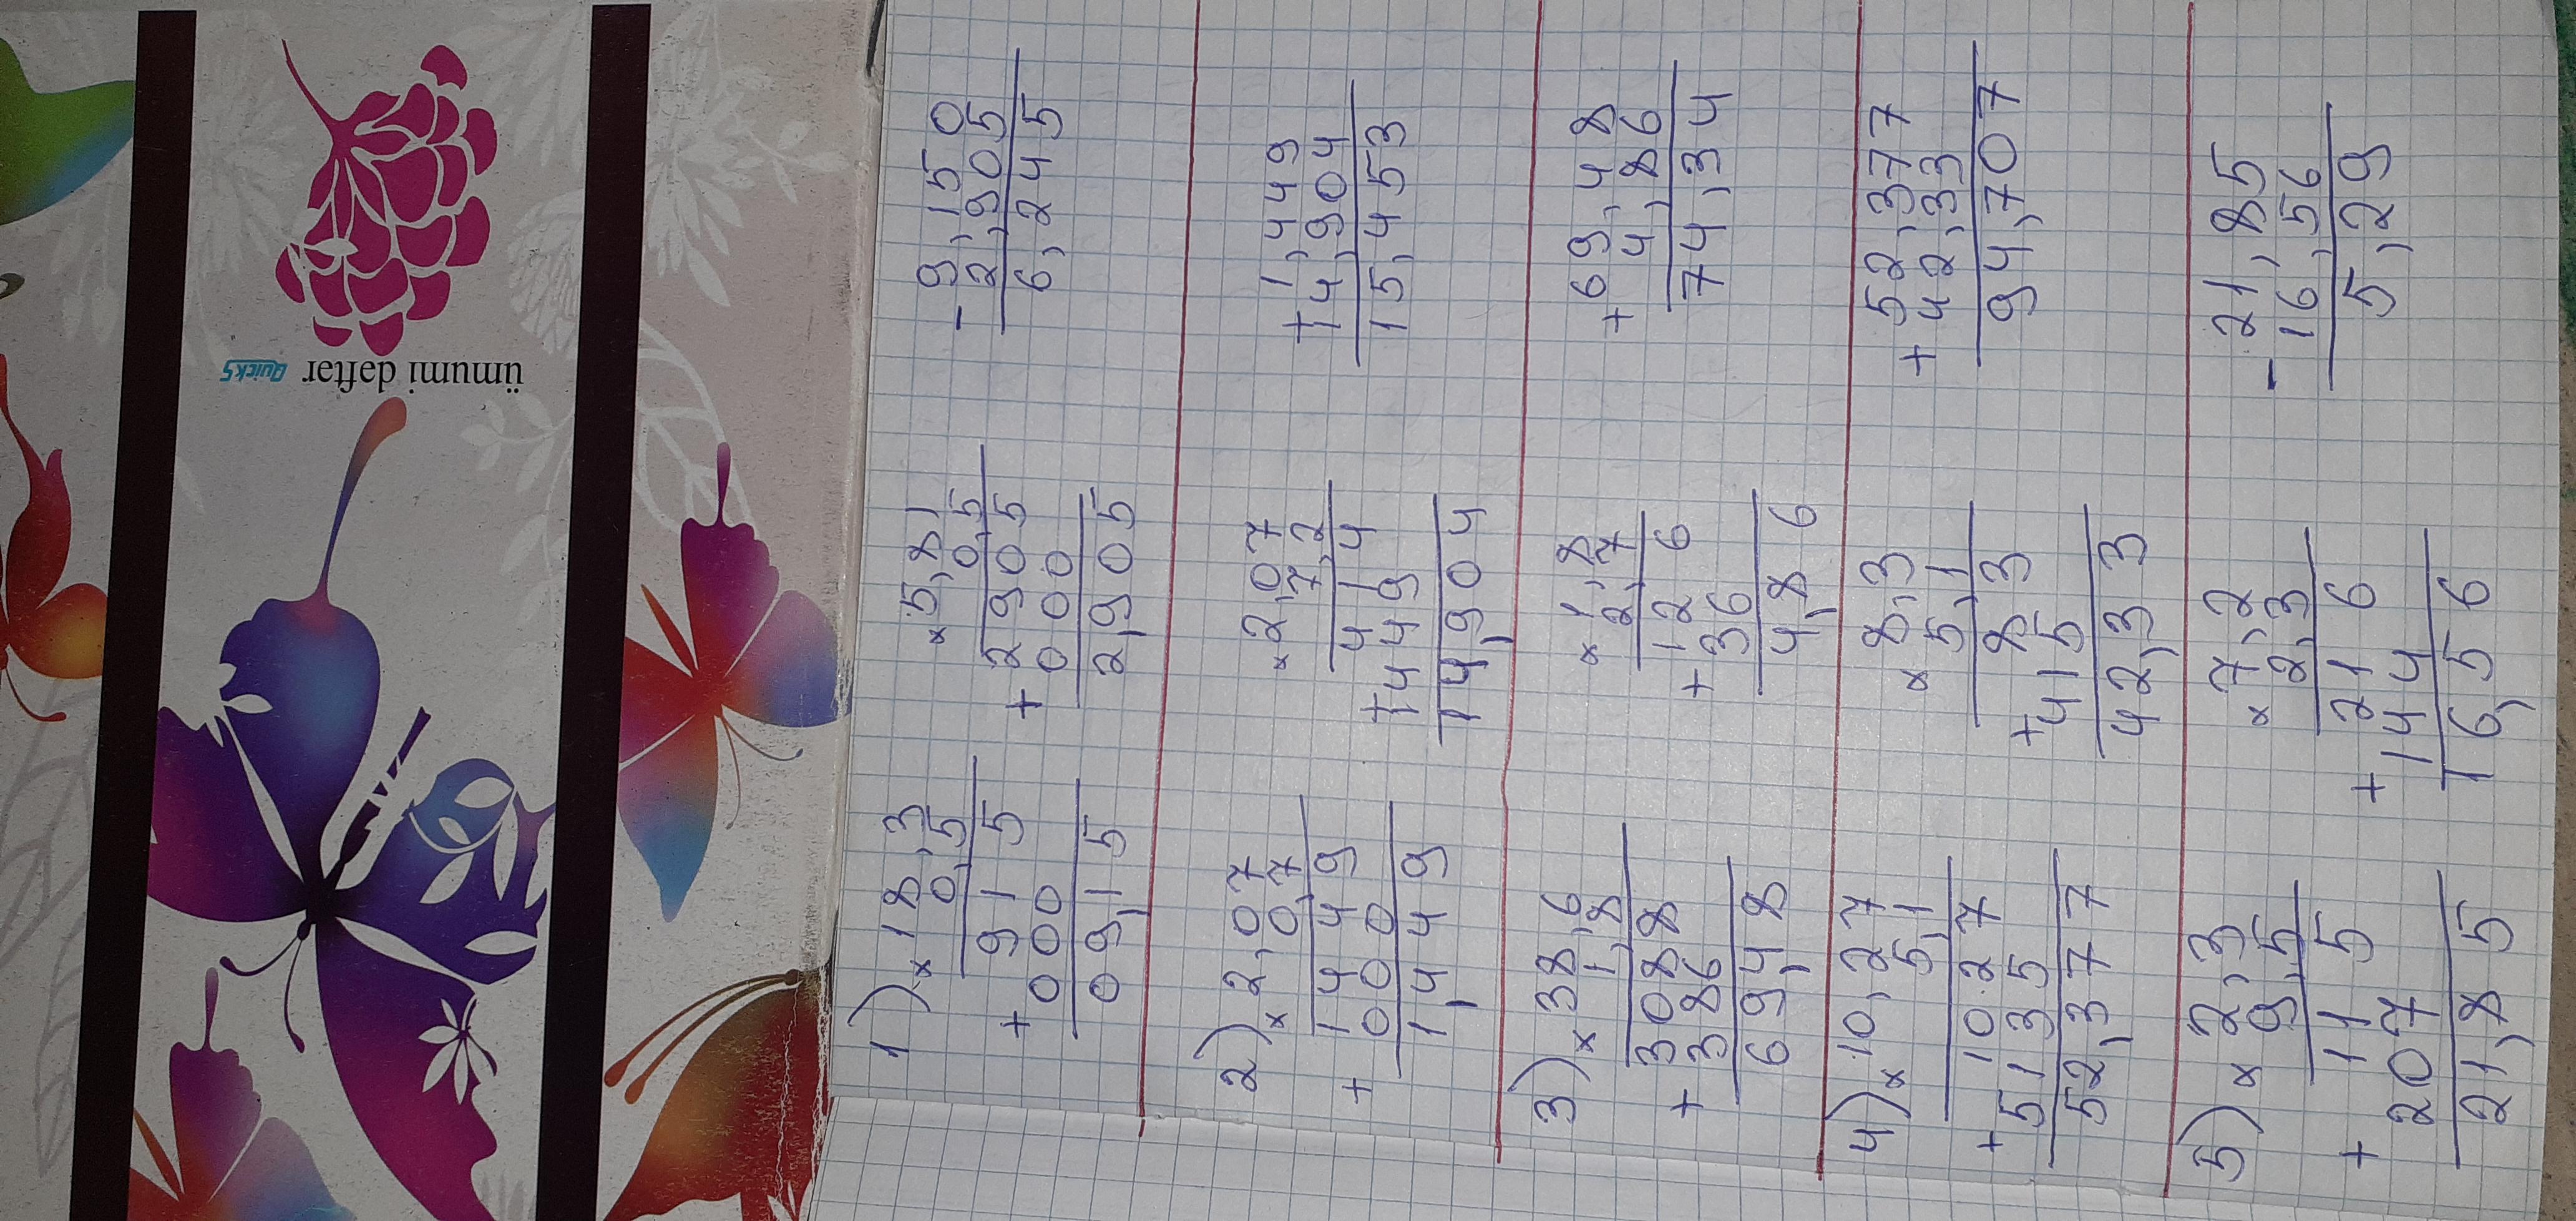 ümumi dəftər
Quicks
1) × 18,3
0,5
915
+ 000
09,15
× 5,81
0,5
2905
+ 000
2,905
- 9,150
2,905
6,245
2) × 2,07
0,7
1449
+ 000
1,449
× 2,07
7,2
414
+ 1449
14,904
+ 1,449
14,904
15,453
3) × 38,6
1,8
3088
+ 386
69,48
× 1,8
2,7
126
+ 36
4,86
+ 69,48
4,86
74,34
4) × 10,27
5,1
1027
+ 5135
52,377
× 8,3
5,1
83
+ 415
42,33
+ 52,377
42,33
94,707
5) × 2,3
9,5
115
+ 207
21,85
× 7,2
2,3
216
+ 144
16,56
- 21,85
16,56
5,29